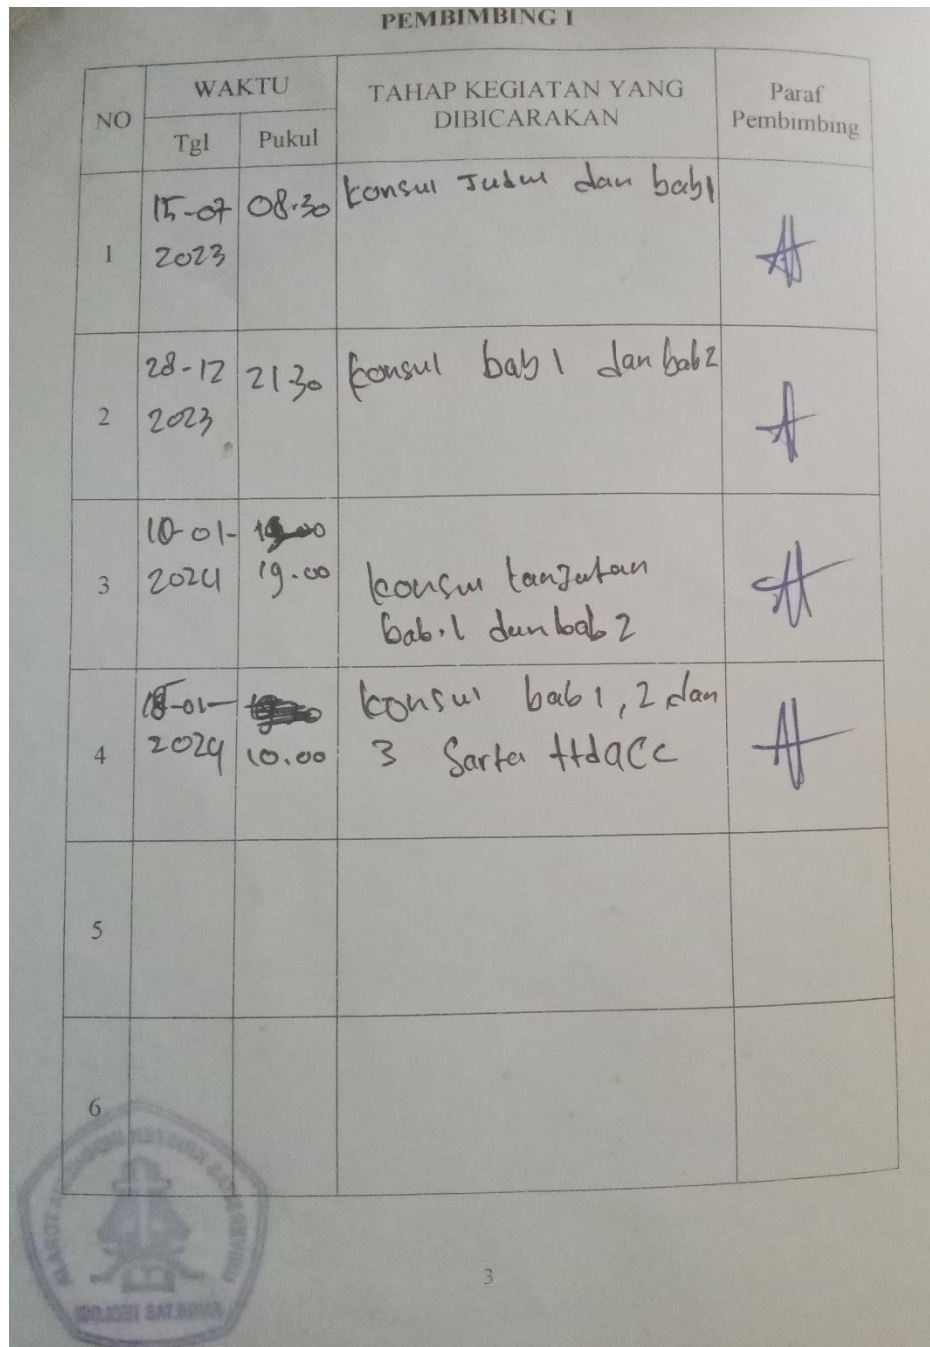 PEMBIMBING I
NO
WAKTU
TAHAP KEGIATAN YANG
DIBICARAKAN
Paraf
Pembimbing
Tgl
Pukul
1
15-07
2023
08.30
konsul Judul dan bab 1
2
28-12
2023
21 30
konsul bab 1 dan bab 2
3
10-01-
2024
19.00
konsul lanjutan
bab.1 dan bab 2
4
18-01-
2024
10.00
konsul bab 1, 2 dan
3 Serta ttd acc
5
6
3
FAKULTAS TEOLOGI